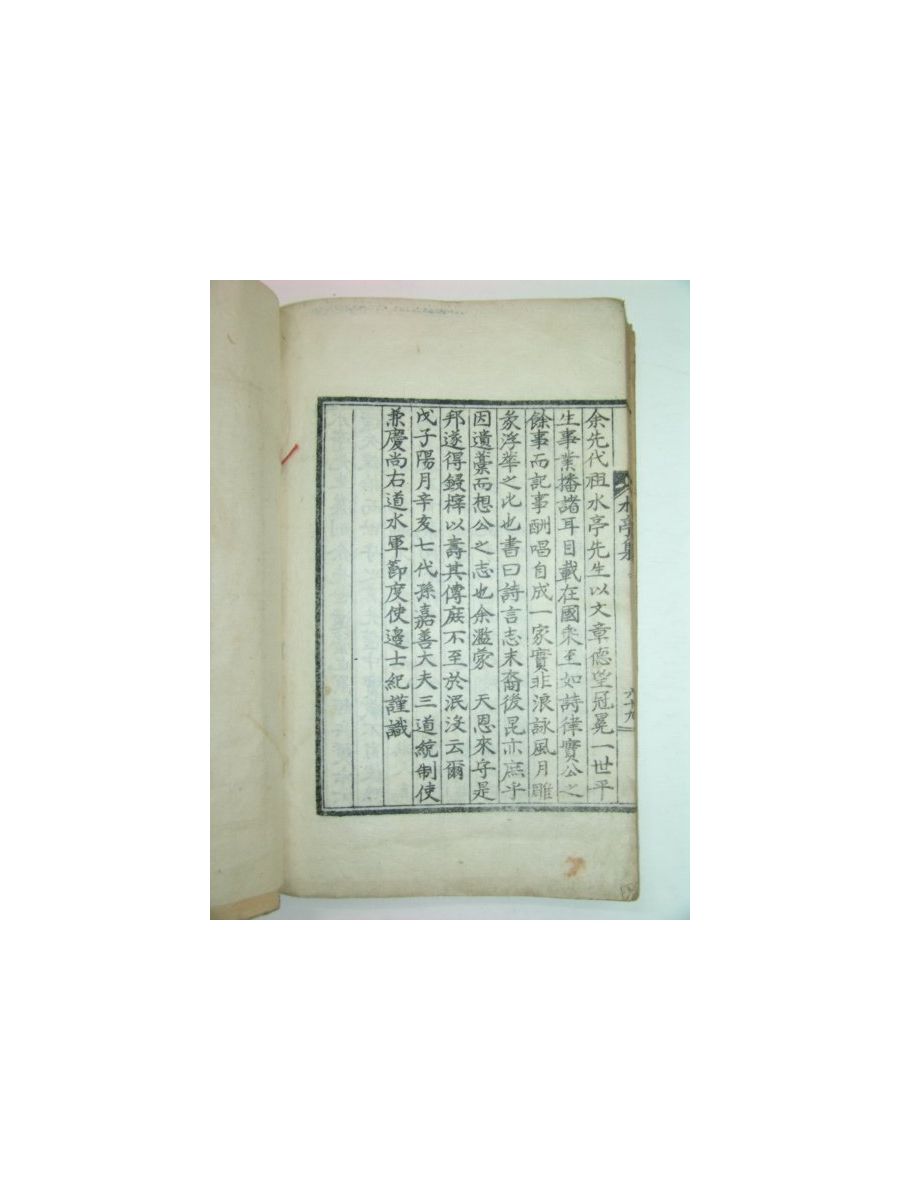 余先代祖水亭先生以文章德望冠冕一世平
生事業播諸耳目載在國乘至如詩律實公之
餘事而記事酬唱自成一家實非浪詠風月雕
篆浮華之比也書曰詩言志末裔後昆亦庶乎
因遺藁而想公之志也余濫蒙 天恩來守是
邦遂得鋟榟以壽其傳庭不至於泯沒云爾
戊子陽月辛亥七代孫嘉善大夫三道統制使
兼慶尚右道水軍節度使邊士紀謹識
水亭集
六十九